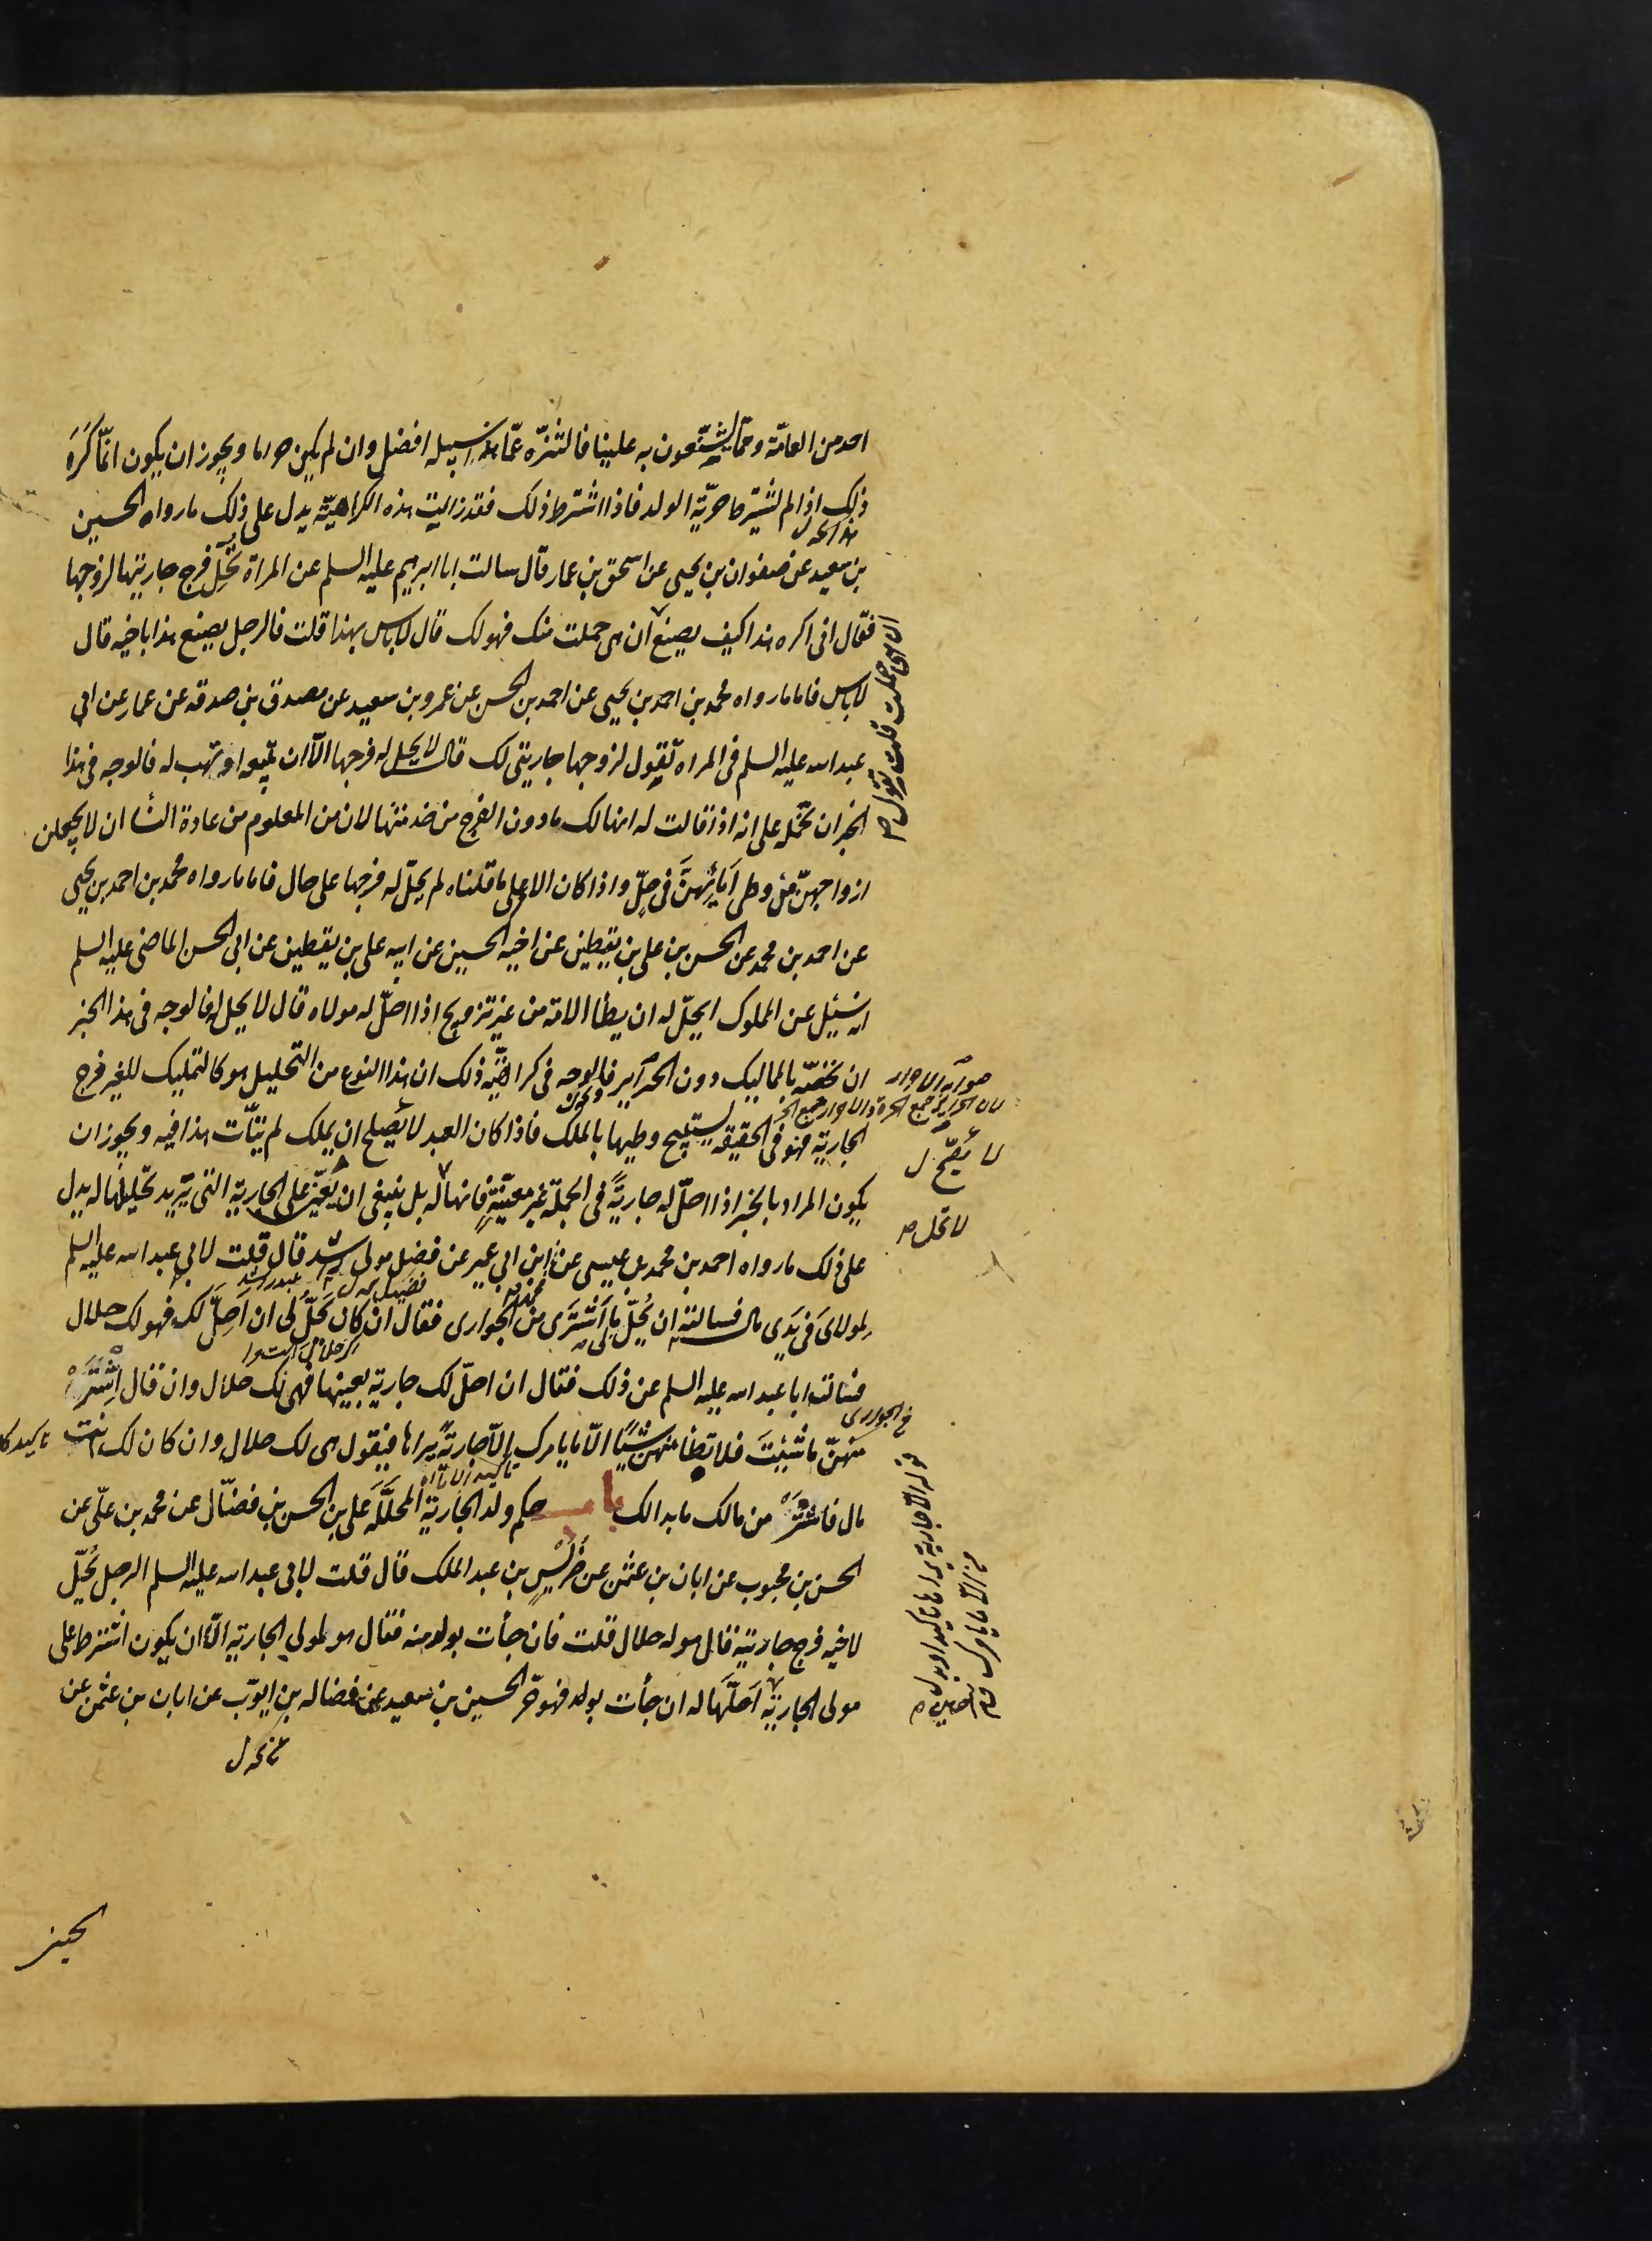 احد من العامّة وممّا يشنّعون به علينا فالتنزّه عمّا هذا سبيله افضل وان لم يكن حراما ويجوز ان يكون انّما كَرَه
ذلك اذا لم يشترط حرّيّة الولد فاذا اشترط ذلك فقد زالت هذه الكراهيّة يدل على ذلك ما رواه الحسين
بن سعيد عن صفوان بن يحيى عن اسحق بن عمار قال سالت ابا ابرهيم عليه السلم عن المراة تُحِلّ فرج جاريتها لزوجها
فقال انى اكره هذا كيف يصنع ان هى حملت منك فهو لك قال لا باس بهذا قلت فالرجل يصنع هذا باخيه قال
لا باس فاما ما رواه محمد بن احمد بن يحيى عن احمد بن الحسن عن عمرو بن سعيد عن مصدق بن صدقه عن عمار عن ابى
عبد الله عليه السلم فى المراه تقول لزوجها جاريتى لك قال لا يحل له فرجها الّا ان تبيعه او تهب له فالوجه فى هذا
الخبر ان نحمله على انه اذا قالت له انها لك ما دون الفرج من خدمتها لان من المعلوم من عادة النسا ان لا يجعلن
ازواجهنّ من وطى امَايِهنّ فى حِلّ واذا كان الامر على ما قلناه لم يحلّ له فرجها على حال فاما ما رواه محمد بن احمد بن يحيى
عن احمد بن محمد عن الحسن بن على بن يقطين عن اخيه الحسين عن ابيه على بن يقطين عن ابى الحسن الماضى عليه السلم
انه سُئِل عن المملوك ايحلّ له ان يطا الامة من غير تزويج اذا احلّ له مولاه قال لا يحل له فالوجه فى هذا الخبر
ان نخصّه بالمماليك دون الحراير فالوجه فى كراهيّة ذلك ان هذا النوع من التحليل هو كالتمليك للغير فرج
الجارية فهو فى الحقيقه يستبيح وطيها بالملك فاذا كان العبد لا يصلح ان يملك لم يتأت هذا فيه ويجوز ان
يكون المراد بالخبر اذا احلّ له جاريةً فى الجملة غير معيّنةٍ فانها له بل ينبغى ان يعيّن على الجارية التى يريد تحليلها له يدل
على ذلك ما رواه احمد بن محمد بن عيسى عن ابن ابى عمير عن فضل مولى راشد قال قلت لابى عبد الله عليه السلم
لمولاىَ فى يَدِى مال فسالته ان يُحِلّ لى ما اَشترى من الجوارى فقال ان كان يحلّ لى ان احِلّ لك فهو لك حلال
فسالت ابا عبد الله عليه السلم عن ذلك فقال ان احلّ لك جارية بعينها فهى لك حلال وان قال اِشْتَرِ
منهنّ ما شئِتَ فلا تطا منهن شيئًا الّا ما يامرك الّا جاريةً يراها فيقول هى لك حلال وان كان لك انت
مال فاشتر من مالك ما بدا لك باب حكم ولد الجارية المحلَّلَه على بن الحسن بن فضّال عن محمد بن علّى عن
الحسن بن محبوب عن ابان بن عثمن عن ضُريْسٍ بن عبد الملك قال قلت لابى عبد الله عليه السلم الرجل يُحِلّ
لاخيه فرج جاريته قال هو له حلال قلت فان جأت بولد منه فقال هو لمولى الجاريه الّا ان يكون اشترط على
مولى الجارية احَلّهَا له ان جأت بولد فهو حرّ الحسين بن سعيد عن فضاله بن ايوّب عن ابان بن عثمن عن
ان هى حملت قلت تقول
لا يصحّ ل
لا تحل
قوله الّا جارية يراها تاكيد او بدل
من الّا ما يامرك
الحسين